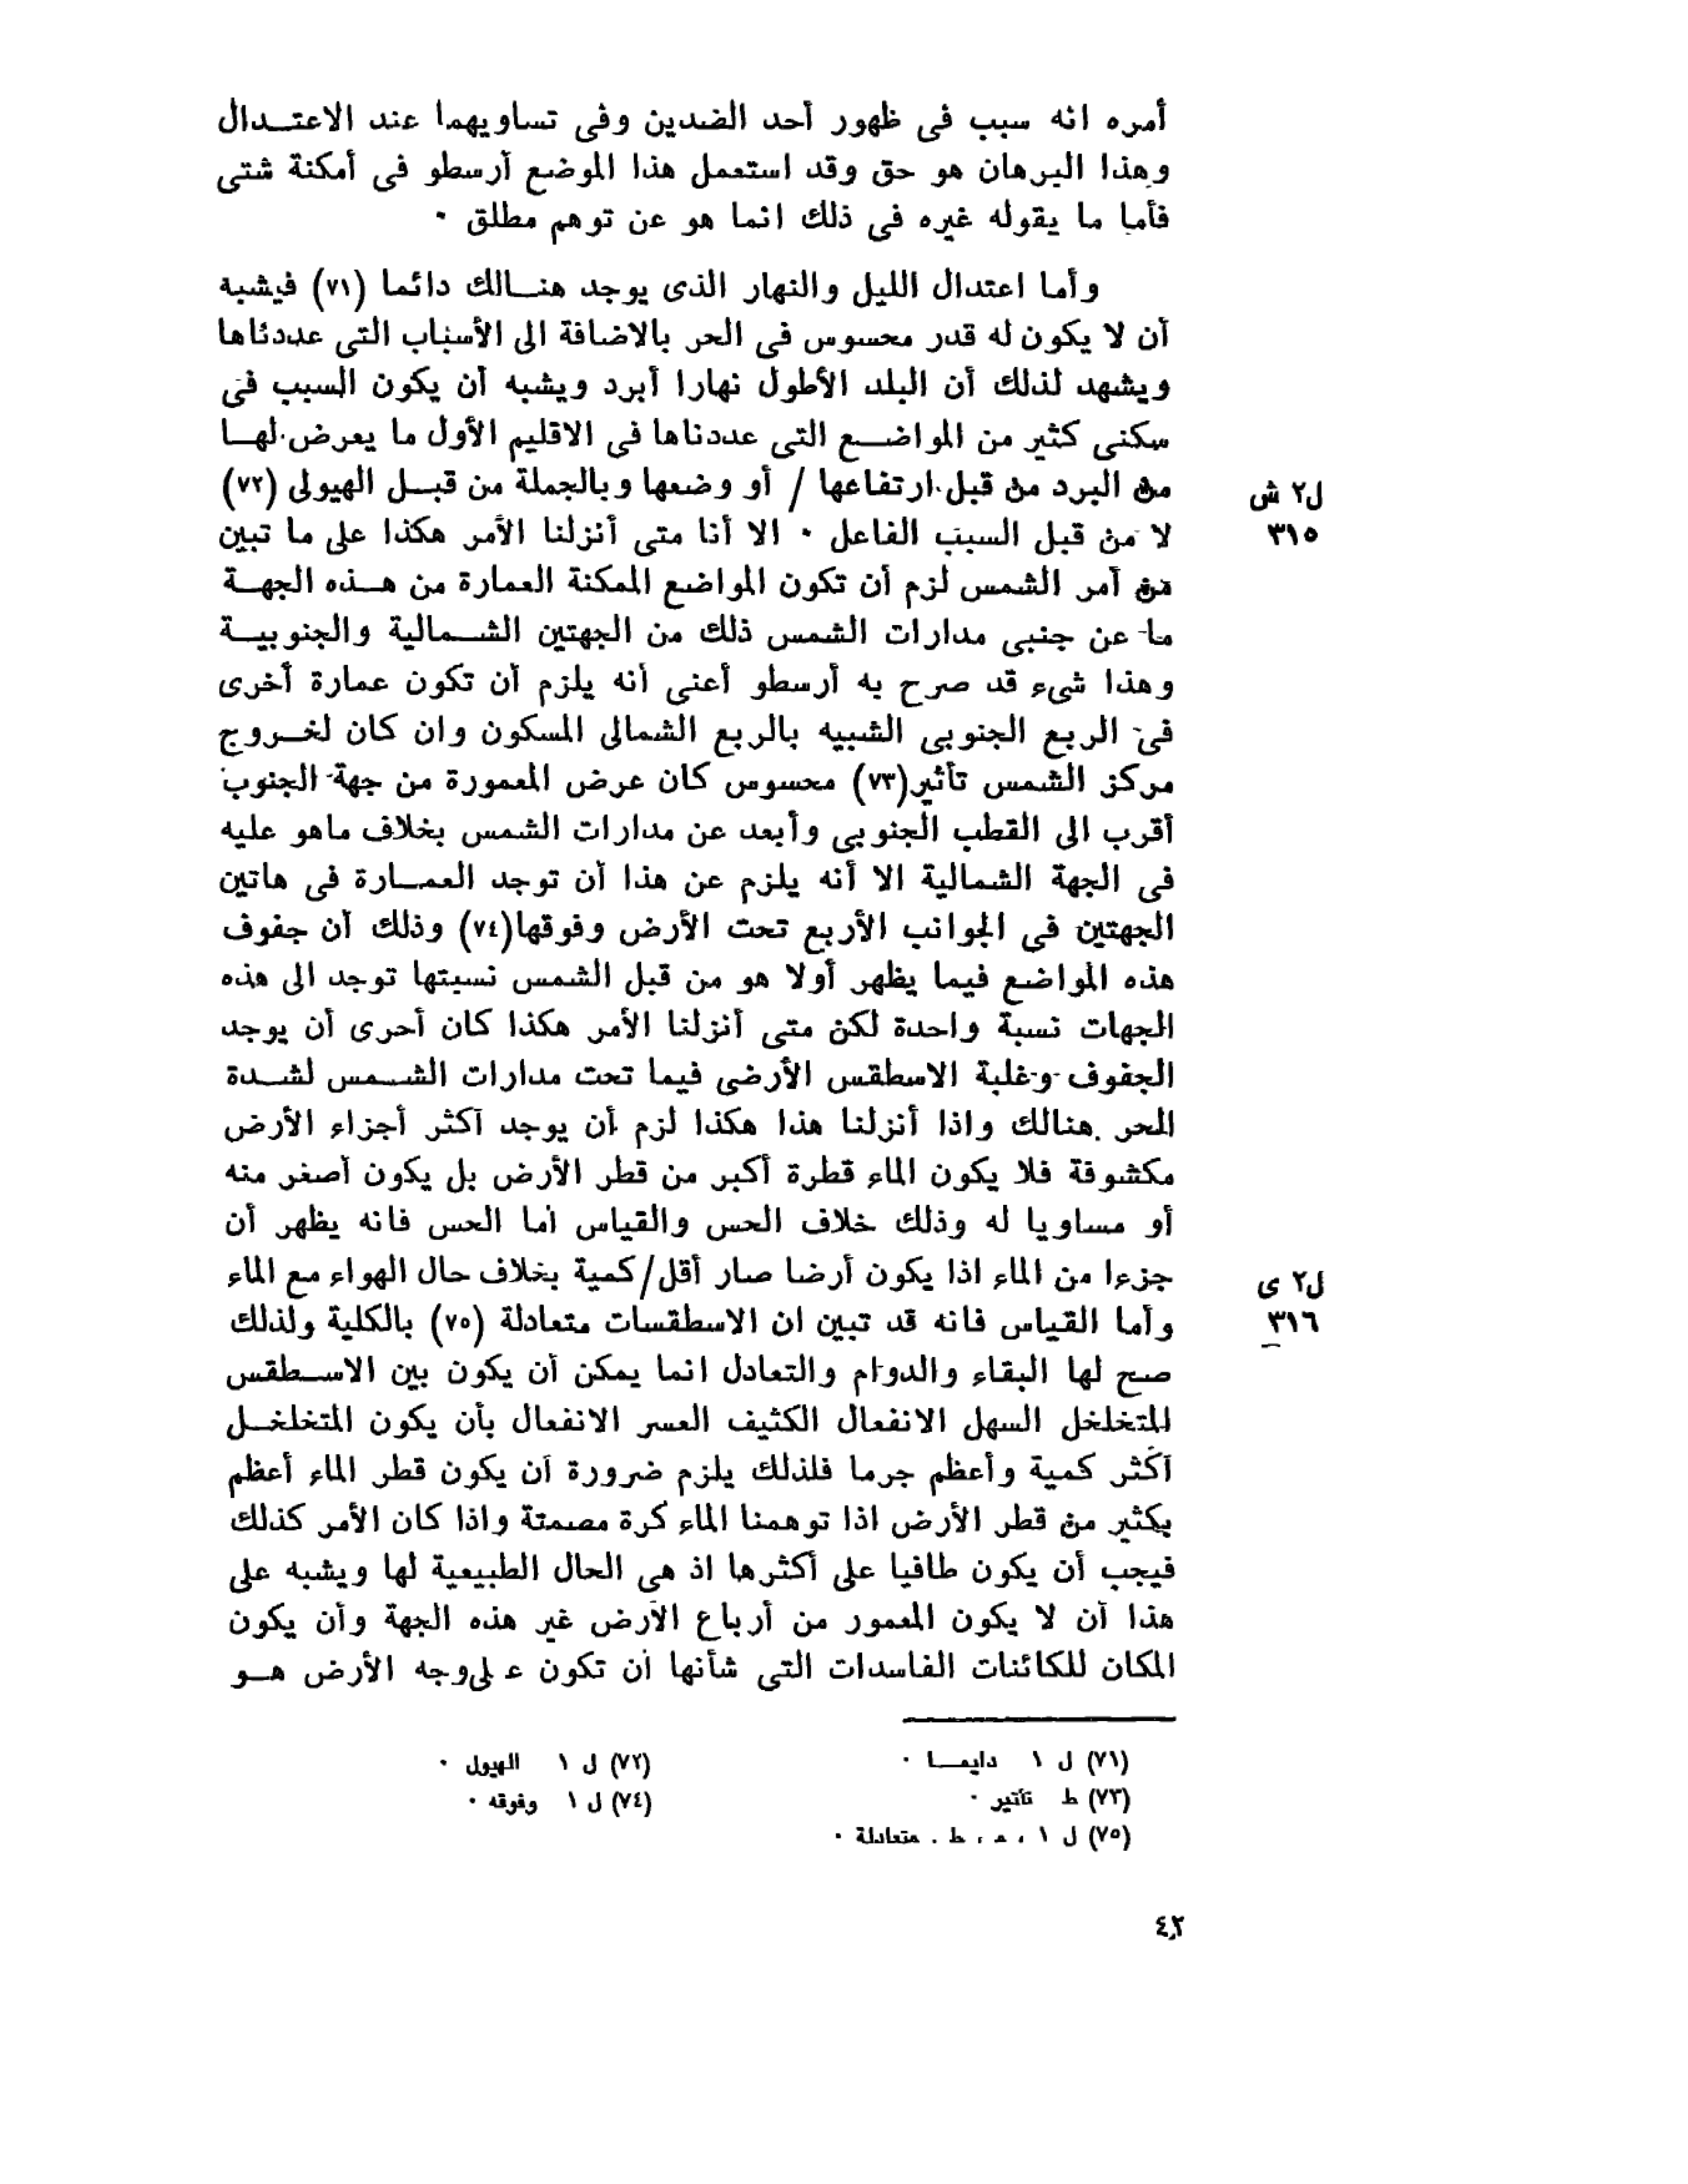 أمره انه سبب فى ظهور أحد الضدين وفى تساويهما عند الاعتدال
وهذا البرهان هو حق وقد استعمل هذا الموضع أرسطو فى أمكنة شتى
فأما ما يقوله غيره فى ذلك انما هو عن توهم مطلق ٠
وأما اعتدال الليل والنهار الذى يوجد هنالك دائما (٧١) فيشبه
أن لا يكون له قدر محسوس فى الحر بالاضافة الى الأسباب التى عددناها
ويشهد لذلك أن البلد الأطول نهارا أبرد ويشبه أن يكون السبب فى
سكنى كثير من المواضع التى عددناها فى الاقليم الأول ما يعرض لها
من البرد من قبل ارتفاعها / أو وضعها وبالجملة من قبل الهيولى (٧٢)
ل٢ ش
لا من قبل السبب الفاعل ٠ الا أنا متى أنزلنا الأمر هكذا على ما تبين
٣١٥
من أمر الشمس لزم أن تكون المواضع الممكنة العمارة من هذه الجهة
ما عن جنبى مدارات الشمس ذلك من الجهتين الشمالية والجنوبية
وهذا شىء قد صرح به أرسطو أعنى أنه يلزم أن تكون عمارة أخرى
فى الربع الجنوبى الشبيه بالربع الشمالى المسكون وان كان لخروج
مركز الشمس تأثير(٧٣) محسوس كان عرض المعمورة من جهة الجنوب
أقرب الى القطب الجنوبى وأبعد عن مدارات الشمس بخلاف ماهو عليه
فى الجهة الشمالية الا أنه يلزم عن هذا أن توجد العمارة فى هاتين
الجهتين فى الجوانب الأربع تحت الأرض وفوقها(٧٤) وذلك أن جفوف
هذه المواضع فيما يظهر أولا هو من قبل الشمس نسبتها توجد الى هذه
الجهات نسبة واحدة لكن متى أنزلنا الأمر هكذا كان أحرى أن يوجد
الجفوف وغلبة الاسطقس الأرضى فيما تحت مدارات الشمس لشدة
الحر هنالك واذا أنزلنا هذا هكذا لزم أن يوجد أكثر أجزاء الأرض
مكشوفة فلا يكون الماء قطرة أكبر من قطر الأرض بل يكون أصغر منه
أو مساويا له وذلك خلاف الحس والقياس أما الحس فانه يظهر أن
جزءا من الماء اذا يكون أرضا صار أقل/كمية بخلاف حال الهواء مع الماء
ل٢ ى
وأما القياس فانه قد تبين ان الاسطقسات متعادلة (٧٥) بالكلية ولذلك
٣١٦
صح لها البقاء والدوام والتعادل انما يمكن أن يكون بين الاسطقس
المتخلخل السهل الانفعال الكثيف العسر الانفعال بأن يكون المتخلخل
أكثر كمية وأعظم جرما فلذلك يلزم ضرورة أن يكون قطر الماء أعظم
بكثير من قطر الأرض اذا توهمنا الماء كرة مصمتة واذا كان الأمر كذلك
فيجب أن يكون طافيا على أكثرها اذ هى الحال الطبيعية لها ويشبه على
هذا أن لا يكون المعمور من أرباع الأرض غير هذه الجهة وأن يكون
المكان للكائنات الفاسدات التى شأنها أن تكون على وجه الأرض هو
(٧١) ل ١ دايما ٠
(٧٢) ل ١ الهيول ٠
(٧٣) ط تأتير ٠
(٧٤) ل ١ وفوقه ٠
(٧٥) ل ١ ، م ، ط . متعادلة ٠
٤٢